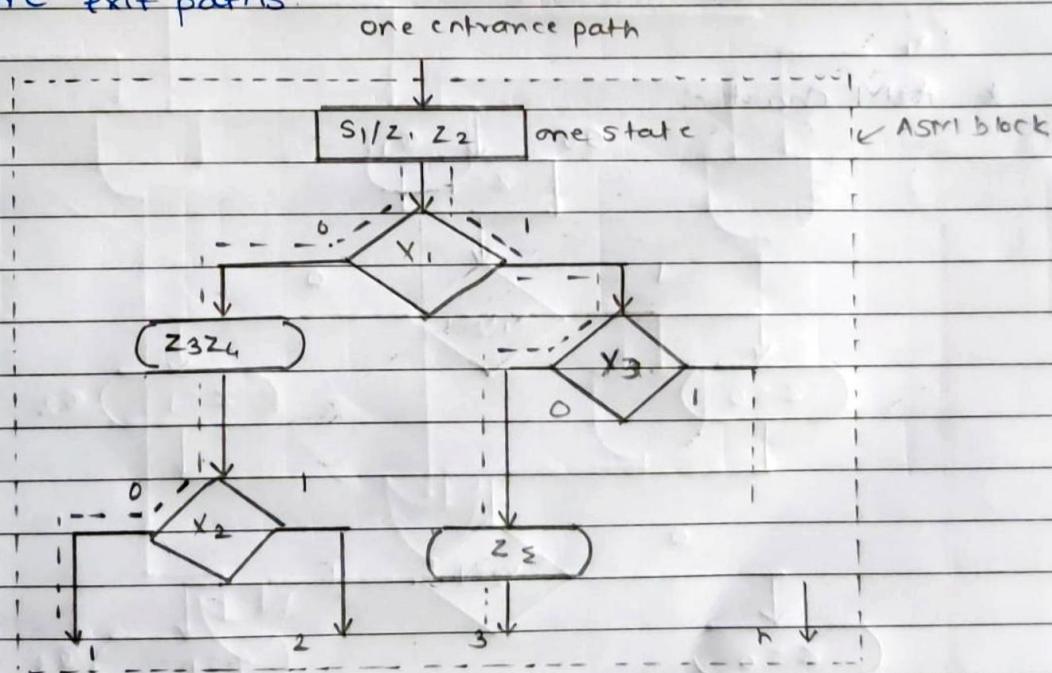 exit paths
one entrance path
S1/Z1 Z2 one state
ASM block
0 X1 1
Z3Z4
X3
0 1
0 1
X2
Z5
1 2 3 n